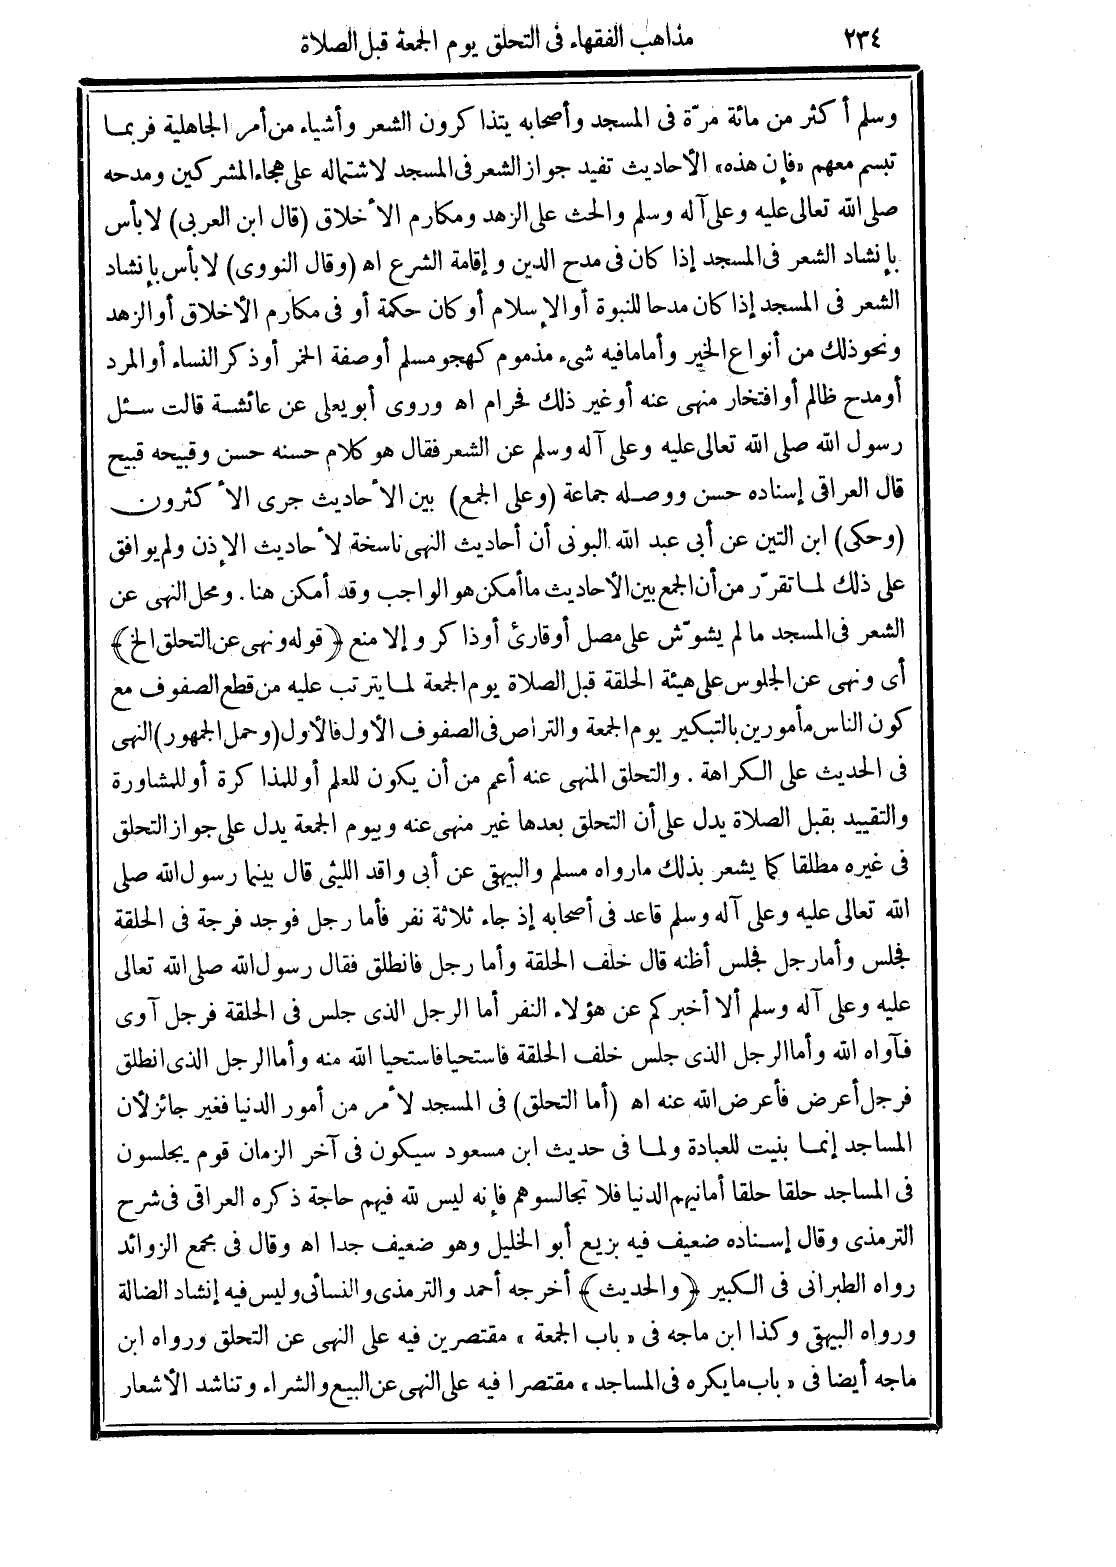 ٢٣٤
مذاهب الفقهاء فى التحلق يوم الجمعة قبل الصلاة
وسلم أكثر من مائة مرّة فى المسجد وأصحابه يتذاكرون الشعر وأشياء من أمر الجاهلية فربما
تبسم معهم «فإن هذه» الأحاديث تفيد جواز الشعر فى المسجد لاشتماله على هجاء المشركين ومدحه
صلى الله تعالى عليه وعلى آله وسلم والحث على الزهد ومكارم الأخلاق (قال ابن العربى) لا بأس
بإنشاد الشعر فى المسجد إذا كان فى مدح الدين وإقامة الشرع اه (وقال النووى) لا بأس بإنشاد
الشعر فى المسجد إذا كان مدحا للنبوة أو الإسلام أو كان حكمة أو فى مكارم الأخلاق أو الزهد
ونحو ذلك من أنواع الخير وأما ما فيه شىء مذموم كهجو مسلم أو صفة الخمر أو ذكر النساء أو المرد
أو مدح ظالم أو افتخار منهى عنه أو غير ذلك فحرام اه وروى أبو يعلى عن عائشة قالت سئل
رسول الله صلى الله تعالى عليه وعلى آله وسلم عن الشعر فقال هو كلام حسنه حسن وقبيحه قبيح
قال العراقى إسناده حسن ووصله جماعة (وعلى الجمع) بين الأحاديث جرى الأكثرون
(وحكى) ابن التين عن أبى عبد الله البونى أن أحاديث النهى ناسخة لأحاديث الإذن ولم يوافق
على ذلك لما تقرّر من أن الجمع بين الأحاديث ما أمكن هو الواجب وقد أمكن هنا. ومحل النهى عن
الشعر فى المسجد ما لم يشوّش على مصل أو قارئ أو ذاكر وإلا منع ﴿قوله ونهى عن التحلق الخ﴾
أى ونهى عن الجلوس على هيئة الحلقة قبل الصلاة يوم الجمعة لما يترتب عليه من قطع الصفوف مع
كون الناس مأمورين بالتبكير يوم الجمعة والتراص فى الصفوف الأول فالأول (وحمل الجمهور) النهى
فى الحديث على الكراهة. والتحلق المنهى عنه أعم من أن يكون للعلم أو للمذاكرة أو للمشاورة
والتقييد بقبل الصلاة يدل على أن التحلق بعدها غير منهى عنه وبيوم الجمعة يدل على جواز التحلق
فى غيره مطلقا كما يشعر بذلك مارواه مسلم والبيهقى عن أبى واقد الليثى قال بينما رسول الله صلى
الله تعالى عليه وعلى آله وسلم قاعد فى أصحابه إذ جاء ثلاثة نفر فأما رجل فوجد فرجة فى الحلقة
فجلس وأما رجل فجلس أظنه قال خلف الحلقة وأما رجل فانطلق فقال رسول الله صلى الله تعالى
عليه وعلى آله وسلم ألا أخبركم عن هؤلاء النفر أما الرجل الذى جلس فى الحلقة فرجل آوى
فآواه الله وأما الرجل الذى جلس خلف الحلقة فاستحيا فاستحيا الله منه وأما الرجل الذى انطلق
فرجل أعرض فأعرض الله عنه اه (أما التحلق) فى المسجد لأمر من أمور الدنيا فغير جائز لأن
المساجد إنما بنيت للعبادة ولما فى حديث ابن مسعود سيكون فى آخر الزمان قوم يجلسون
فى المساجد حلقا حلقا أمانيهم الدنيا فلا تجالسوهم فإنه ليس لله فيهم حاجة ذكره العراقى فى شرح
الترمذى وقال إسناده ضعيف فيه بزيع أبو الخليل وهو ضعيف جدا اه وقال فى مجمع الزوائد
رواه الطبرانى فى الكبير ﴿والحديث﴾ أخرجه أحمد والترمذى والنسائى وليس فيه إنشاد الضالة
ورواه البيهقى وكذا ابن ماجه فى «باب الجمعة» مقتصرين فيه على النهى عن التحلق ورواه ابن
ماجه أيضا فى «باب مايكره فى المساجد» مقتصرا فيه على النهى عن البيع والشراء وتناشد الأشعار